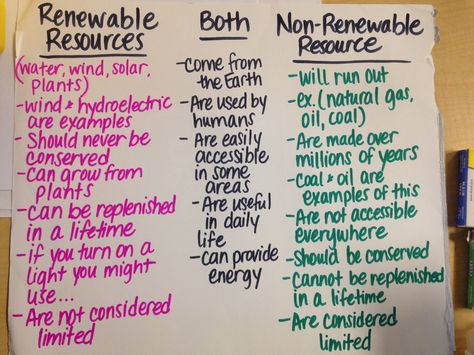 Renewable
Resources
(water, wind, solar,
plants)
-wind & hydroelectric
are examples
-Should never be
conserved
-Can grow from
plants
-Can be replenished
in a lifetime
-if you turn on a
light you might
use...
-Are not considered
limited
Both
-Come from
the Earth
-Are used by
humans
-Are easily
accessible
in some
areas
-Are useful
in daily
life
-Can provide
energy
Non-Renewable
Resource
-Will run out
-ex. (natural gas,
oil, coal)
-Are made over
millions of years
-Coal & oil are
examples of this
-Are not accessible
everywhere
-Should be conserved
-Cannot be replenished
in a lifetime
-Are considered
limited